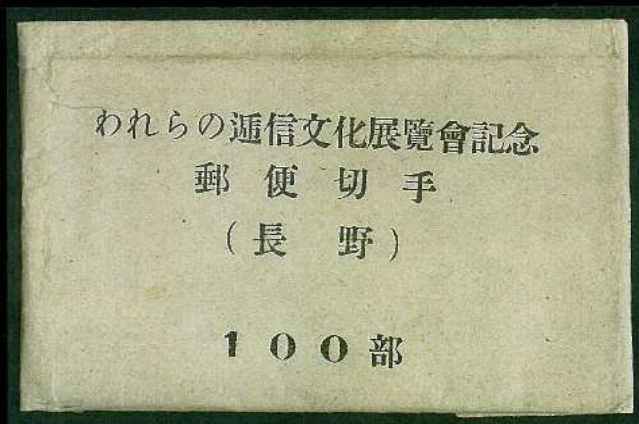 われらの逓信文化展覽會記念
郵便切手
(長野)
100部